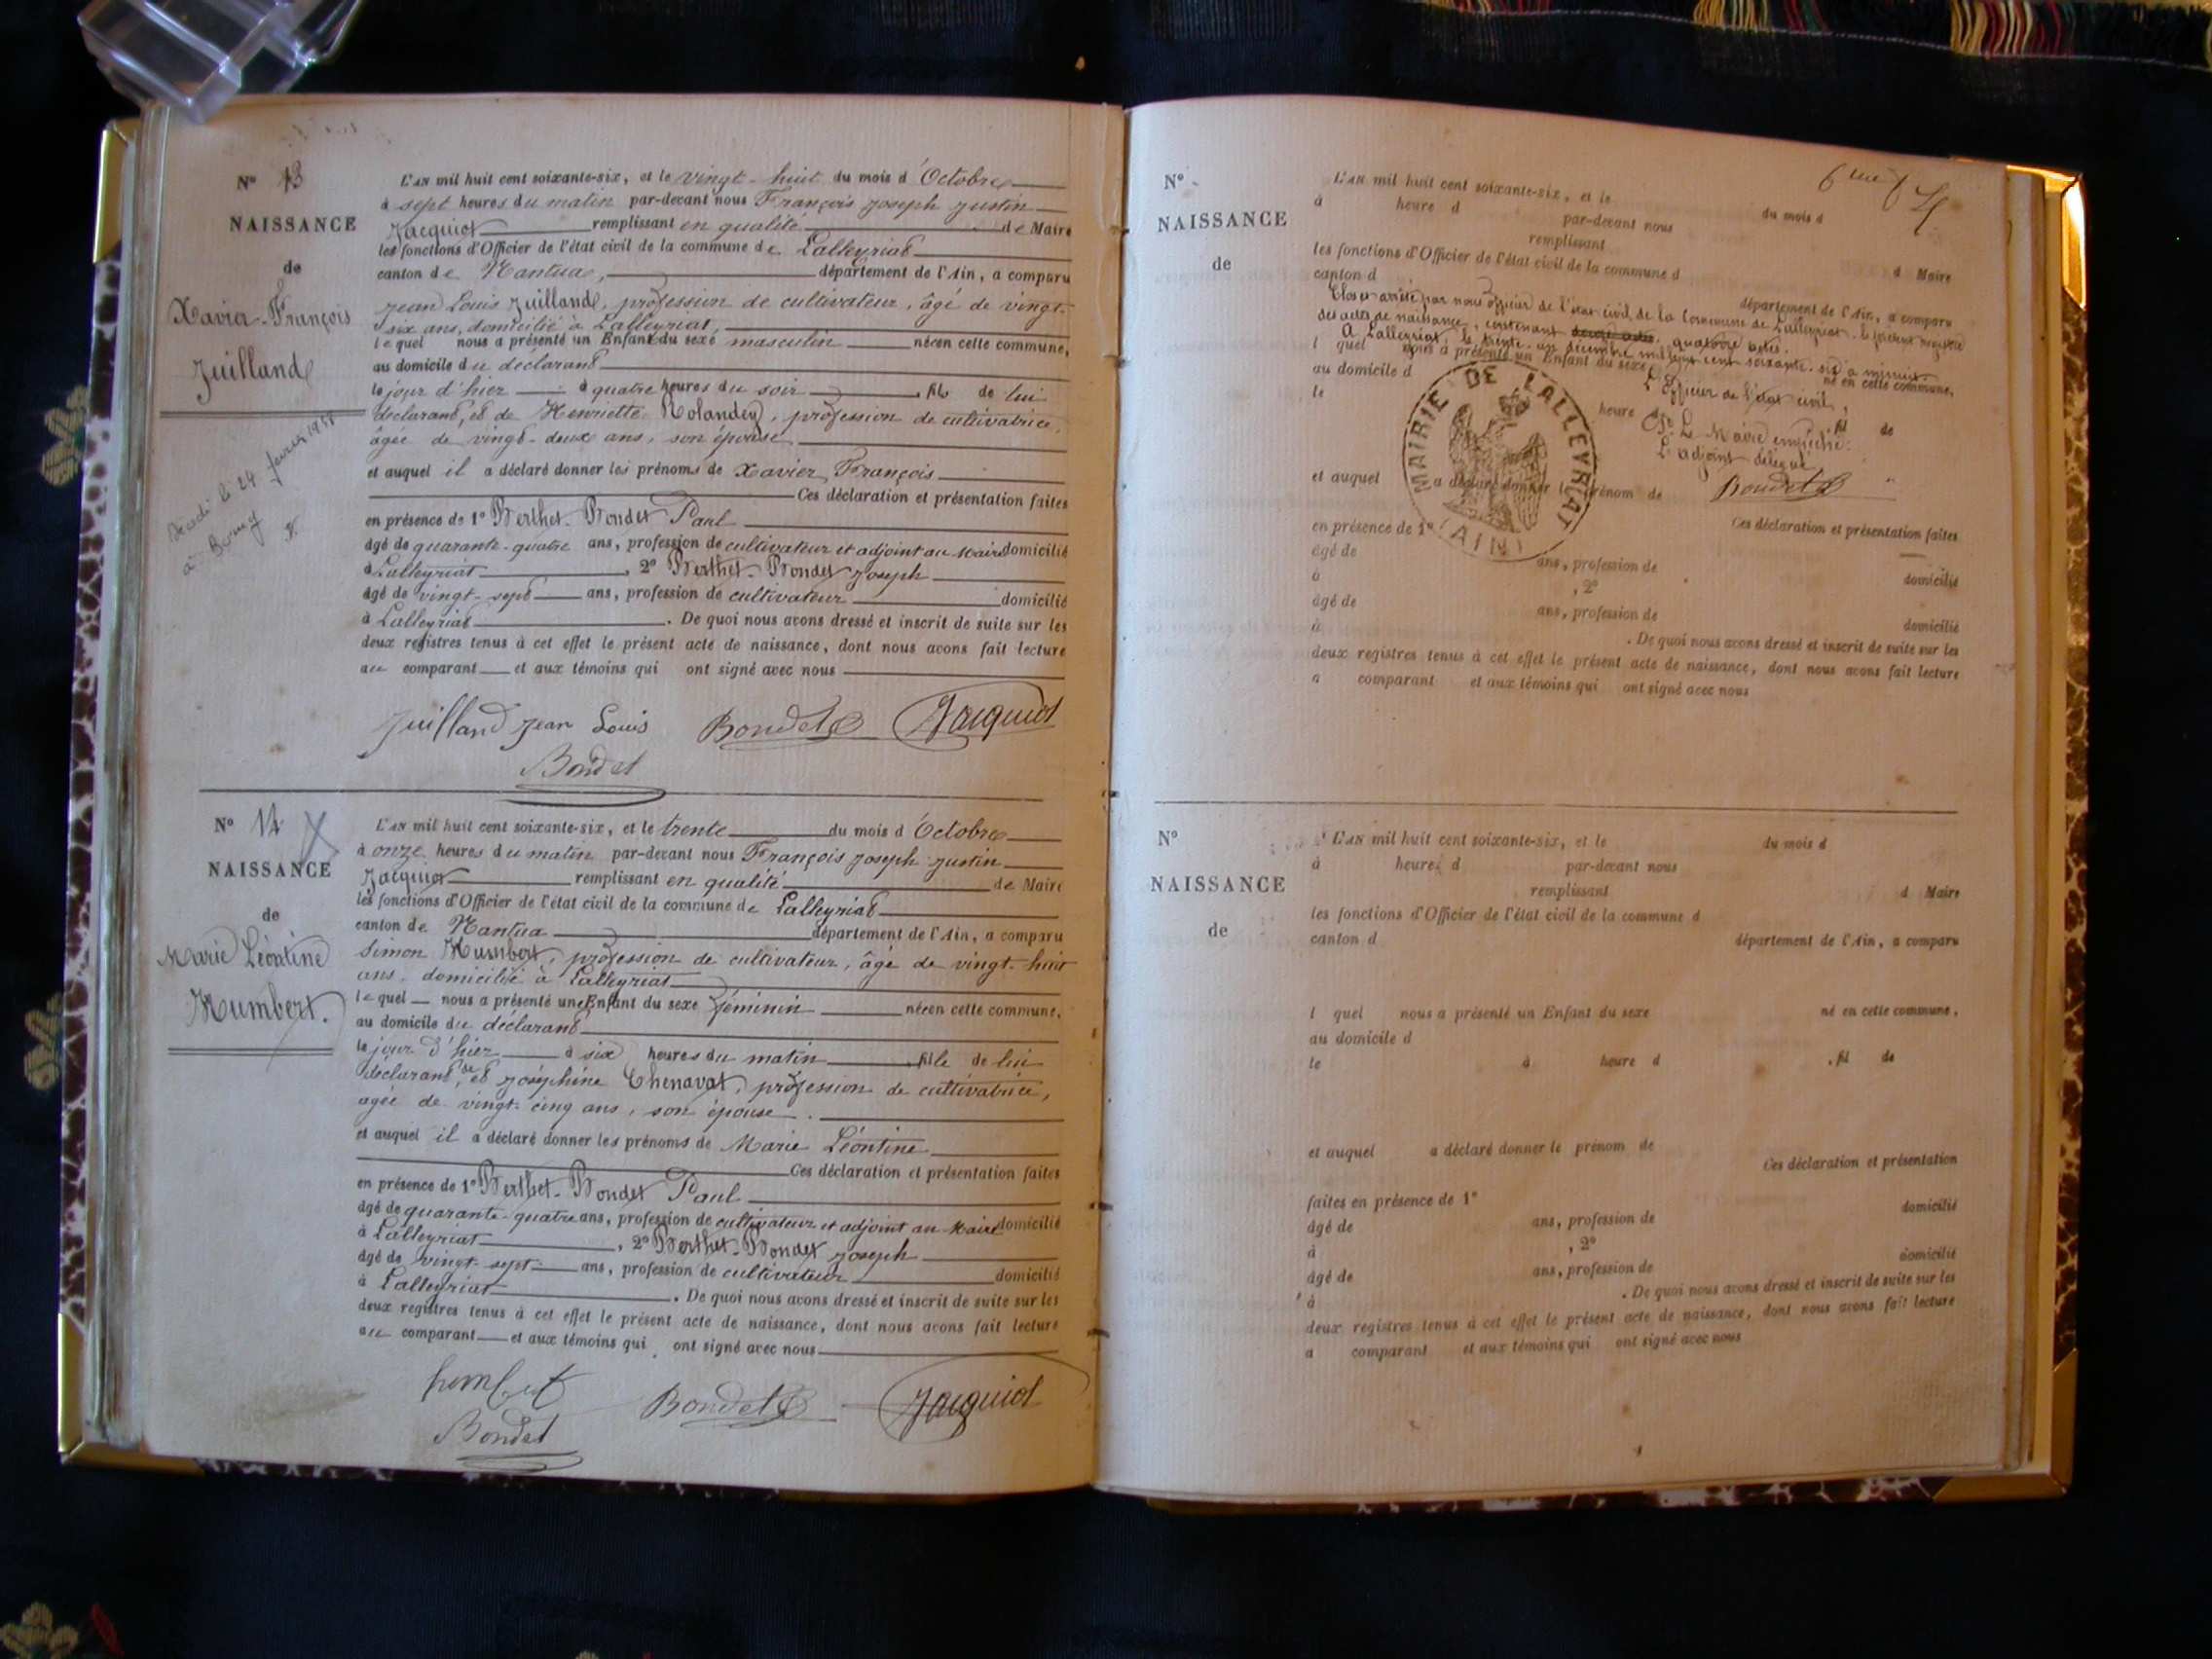 N° 13
NAISSANCE
de
Xavier-François
Juilland
décédé le 24 février 1951
à Bourg
L'AN mil huit cent soixante-six, et le vingt-huit du mois d'Octobre
à sept heures du matin par-devant nous François Joseph Justin
Jacquiot remplissant en qualité de Maire
les fonctions d'Officier de l'état civil de la commune de Lalleyriat
canton de Nantua, département de l'Ain, a comparu
Jean Louis Juilland, profession de cultivateur, âgé de vingt-
six ans, domicilié à Lalleyriat,
lequel nous a présenté un Enfant du sexe masculin né en cette commune,
au domicile du déclarant
le jour d'hier à quatre heures du soir, fils de lui
déclarant, et de Henriette Rolandez, profession de cultivatrice,
âgée de vingt-deux ans, son épouse
et auquel il a déclaré donner les prénoms de Xavier François
Ces déclaration et présentation faites
en présence de 1° Berthet-Bondet Paul
âgé de quarante-quatre ans, profession de cultivateur et adjoint au Maire domicilié
à Lalleyriat, 2° Berthet-Bondet Joseph
âgé de vingt-sept ans, profession de cultivateur domicilié
à Lalleyriat. De quoi nous avons dressé et inscrit de suite sur les
deux registres tenus à cet effet le présent acte de naissance, dont nous avons fait lecture
au comparant et aux témoins qui ont signé avec nous
Juilland Jean Louis Bondet B Jacquiot
Bondet
N° 14
NAISSANCE
de
Marie Léontine
Humbert.
L'AN mil huit cent soixante-six, et le trente du mois d'Octobre
à onze heures du matin par-devant nous François Joseph Justin
Jacquiot remplissant en qualité de Maire
les fonctions d'Officier de l'état civil de la commune de Lalleyriat
canton de Nantua département de l'Ain, a comparu
Simon Humbert, profession de cultivateur, âgé de vingt-huit
ans, domicilié à Lalleyriat
lequel nous a présenté une Enfant du sexe féminin née en cette commune,
au domicile du déclarant
le jour d'hier à six heures du matin, fille de lui
déclarant, et de Joséphine Chenavat, profession de cultivatrice,
agée de vingt-cinq ans, son épouse.
et auquel il a déclaré donner les prénoms de Marie Léontine
Ces déclaration et présentation faites
en présence de 1° Berthet-Bondet Paul
âgé de quarante-quatre ans, profession de cultivateur et adjoint au Maire domicilié
à Lalleyriat, 2° Berthet-Bondet Joseph
âgé de vingt-sept ans, profession de cultivateur domicilié
à Lalleyriat. De quoi nous avons dressé et inscrit de suite sur les
deux registres tenus à cet effet le présent acte de naissance, dont nous avons fait lecture
au comparant et aux témoins qui ont signé avec nous
humbert Bondet B Jacquiot
Bondet
6me
N°
NAISSANCE
de
L'AN mil huit cent soixante-six, et le du mois d
à heure d par-devant nous
remplissant d Maire
les fonctions d'Officier de l'état civil de la commune d
canton d département de l'Ain, a comparu
Clos et arrêté par nous officier de l'état civil de la Commune de Lalleyriat, le présent registre
des actes de naissance, contenant quatorze actes.
A Lalleyriat, le trente-un décembre mil huit cent soixante-six à minuit.
l quel nous a présenté un Enfant du sexe né en cette commune,
L'Officier de l'état civil,
au domicile d
le heure d fil de
Pr Le Maire empêché:
L'adjoint délégué
Bondet B
MAIRIE DE LALLEYRIAT
(AIN)
et auquel a déclaré donner le prénom de
Ces déclaration et présentation faites
en présence de 1°
âgé de ans, profession de domicilié
à , 2°
âgé de ans, profession de domicilié
à . De quoi nous avons dressé et inscrit de suite sur les
deux registres tenus à cet effet le présent acte de naissance, dont nous avons fait lecture
a comparant et aux témoins qui ont signé avec nous
N°
NAISSANCE
de
L'AN mil huit cent soixante-six, et le du mois d
à heure d par-devant nous
remplissant d Maire
les fonctions d'Officier de l'état civil de la commune d
canton d département de l'Ain, a comparu
l quel nous a présenté un Enfant du sexe né en cette commune,
au domicile d
le à heure d , fil de
et auquel a déclaré donner le prénom de
Ces déclaration et présentation
faites en présence de 1°
âgé de ans, profession de domicilié
à , 2°
âgé de ans, profession de domicilié
à . De quoi nous avons dressé et inscrit de suite sur les
deux registres tenus à cet effet le présent acte de naissance, dont nous avons fait lecture
a comparant et aux témoins qui ont signé avec nous